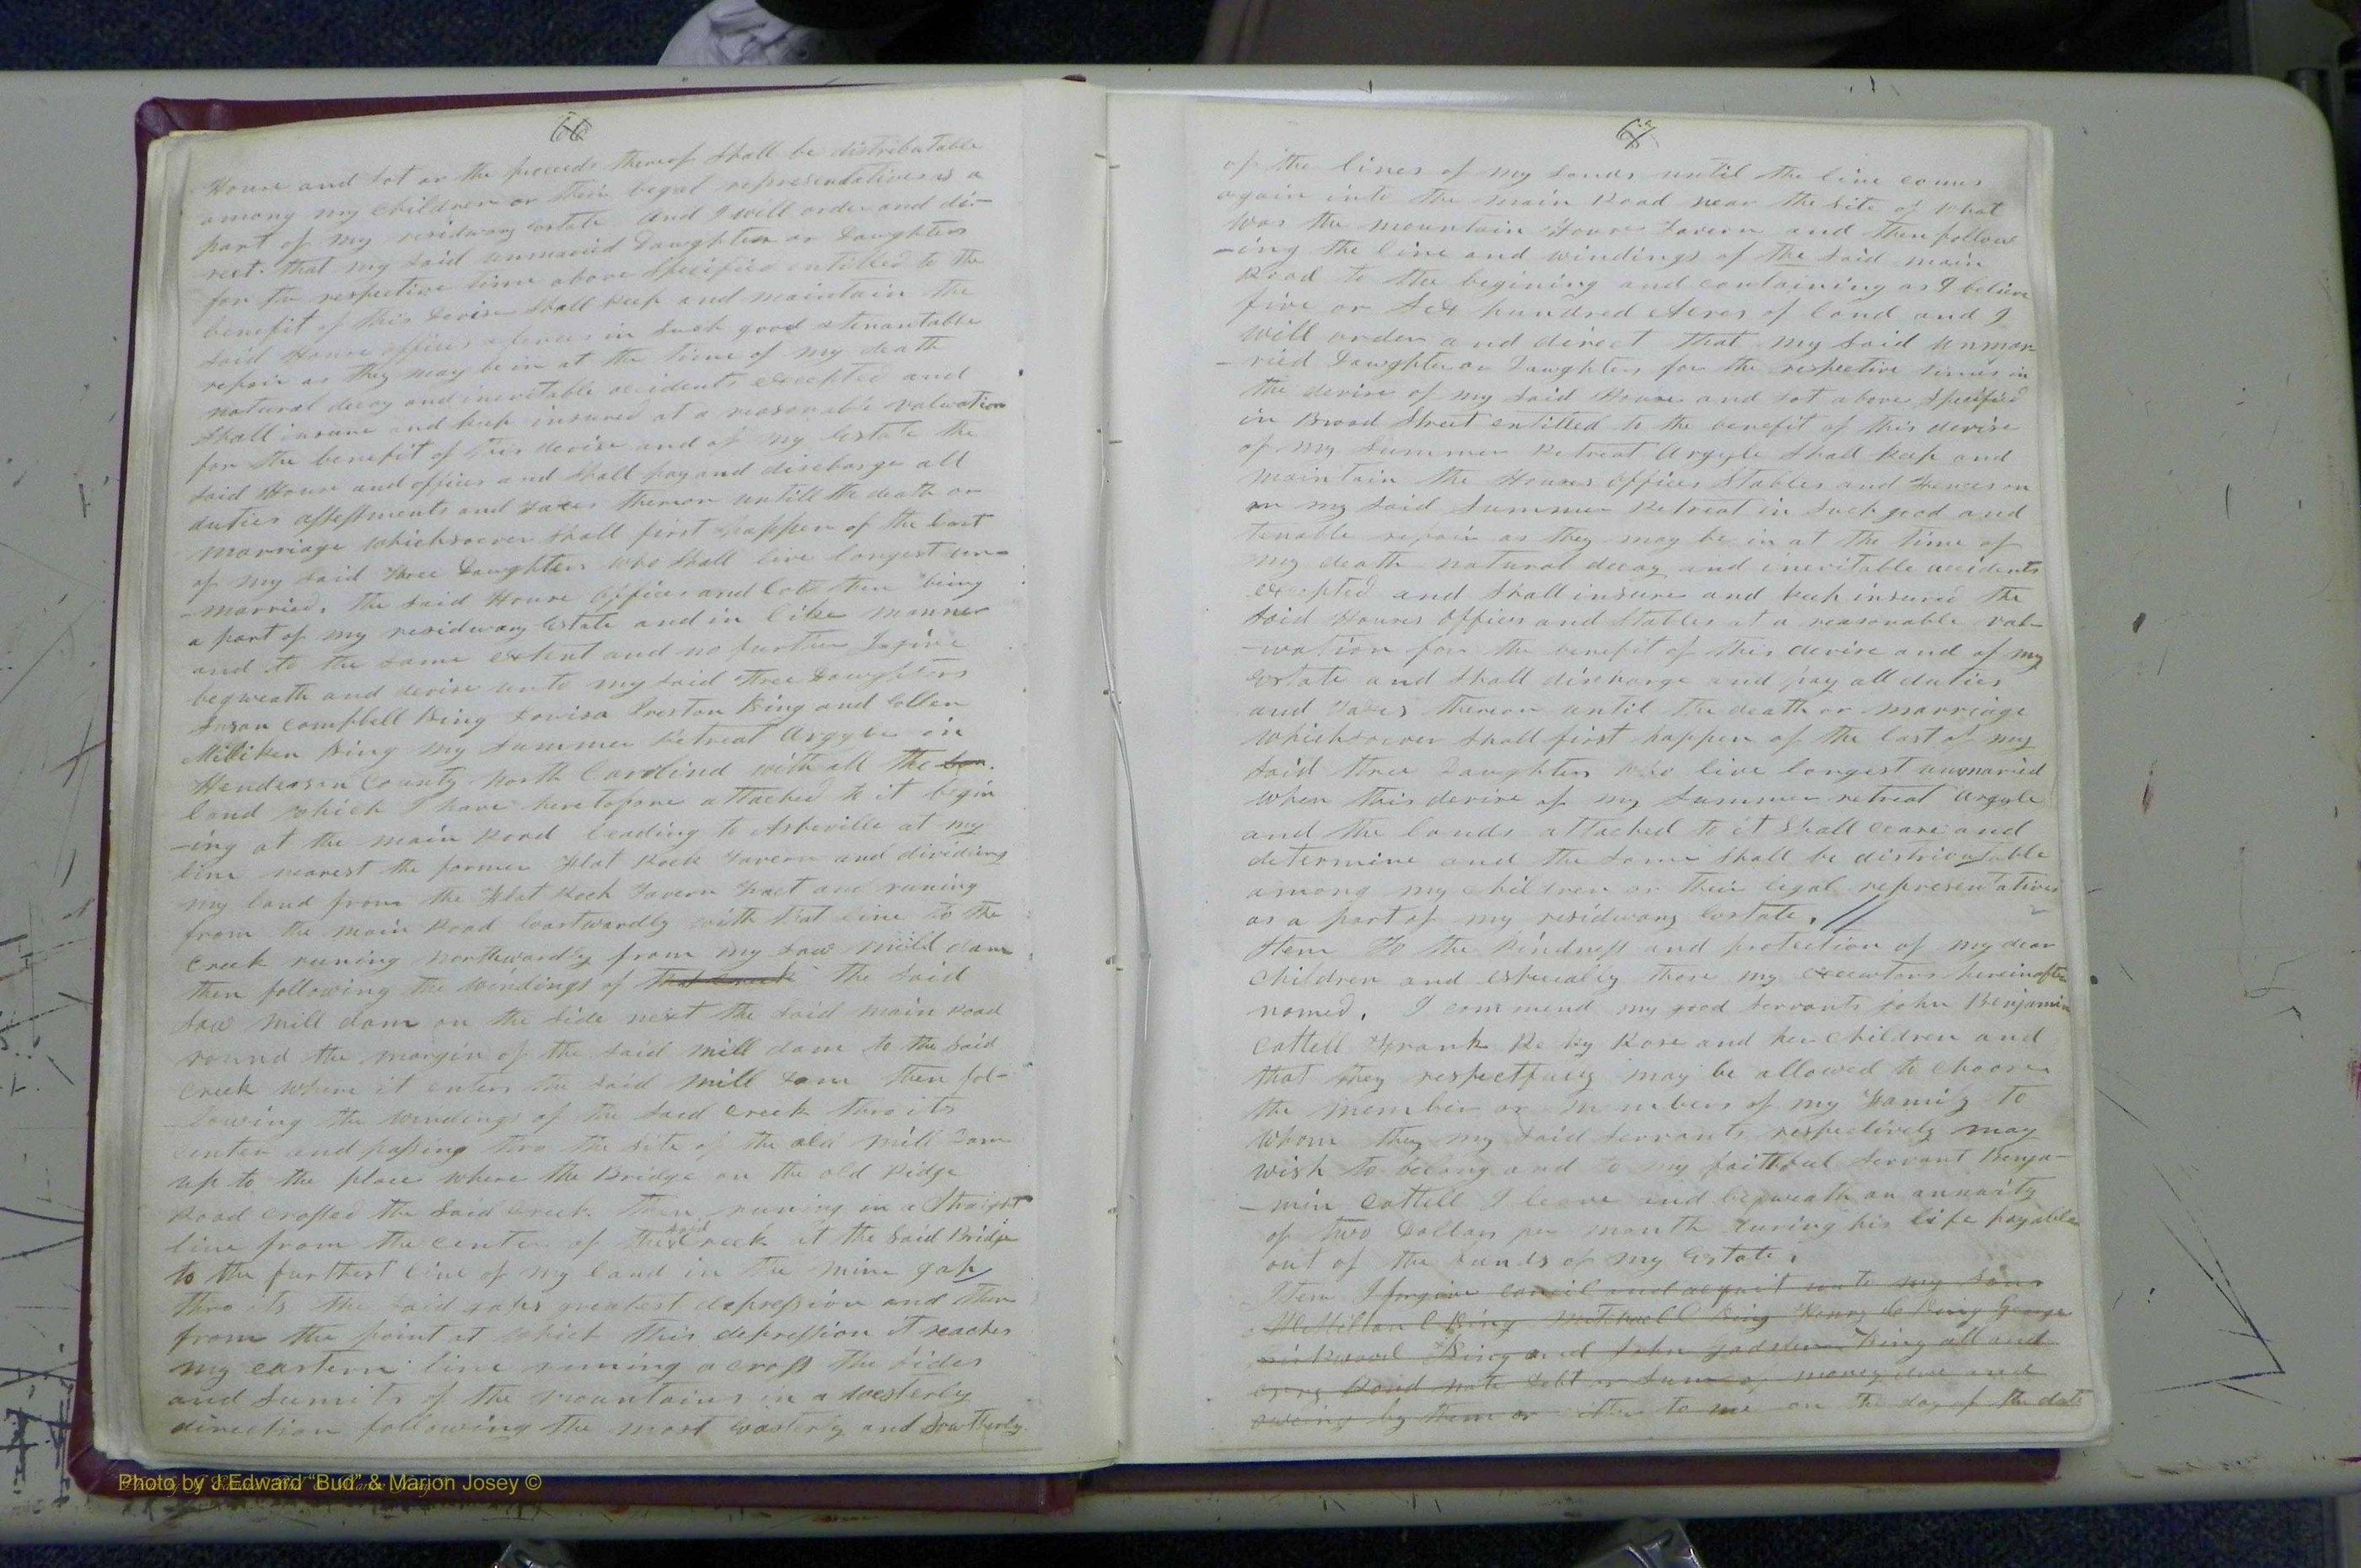 66
House and Lot or the proceeds thereof shall be distributable
among my children or their legal representatives as a
part of my residuary Estate and I will order and di-
rect that my said unmarried Daughter or Daughters
for the respective time above specified entitled to the
benefit of this Devise shall keep and maintain the
said House offices & fences in such good & tenantable
repair as they may be in at the time of my death
natural decay and inevitable accidents excepted and
shall insure and keep insured at a reasonable valuation
for the benefit of this devise and of my Estate the
said House and offices and shall pay and discharge all
duties assessments and Taxes thereon untill the death or
marriage whichsoever shall first happen of the last
of my said three Daughters who shall live longest un-
-married, the said House offices and Lot then being
a part of my residuary Estate and in like manner
and to the same extent and no further I give
beqweath and devise unto my said three Daughters
Susan Campbell King Lovisa Preston King and Ellen
Milliken King my Summer Retreat Argyle in
Henderson County North Carolina with all the
land which I have heretofore attached to it begin
-ing at the main Road leading to Asheville at my
line nearest the former Flat Rock Tavern and dividing
my land from the Flat Rock Tavern Tract and runing
from the main Road Eastwardly with that line to the
creek runing northwardly from my saw mill dam
then following the windings of that creek the said
saw mill dam on the side next the said main road
round the margin of the said mill dam to the said
creek where it enters the said mill dam then fol-
-lowing the windings of the said creek thro its
center and passing thro the site of the old mill Dam
up to the place where the Bridge on the old Ridge
Road crossed the said creek then runing in a straight
line from the center of the said creek at the said Bridge
to the furthest line of my land in the mine gap
thro its the said gaps greatest depression and then
from the point at which this depression it reaches
my eastern line runing across the sides
and sumits of the mountains in a westerly
direction following the most Easterly and Southerly
67
of the lines of my lands until the line comes
again into the main Road near the site of what
was the mountain House Tavern and then follow
-ing the line and windings of the said main
Road to the begining and containing as I believe
five or six hundred Acres of land and I
will order and direct that my said unmar
-ried Daughter or Daughters for the respective times in
the devise of my said House and Lot above specified
in Broad Street entitled to the benefit of this devise
of my Summer Retreat Argyle shall keep and
maintain the Houses offices Stables and Fences on
on my said Summer Retreat in such good and
tenable repair as they may be in at the time of
my death natural decay and inevitable accidents
excepted and shall insure and keep insured the
said Houses offices and Stables at a reasonable val-
-uation for the benefit of this devise and of my
Estate and shall discharge and pay all duties
and Taxes thereon until the death or marriage
whichsoever shall first happen of the last of my
said three Daughters who live longest unmaried
when this devise of my Summer retreat Argyle
and the lands attached to it shall cease and
determine and the same shall be districutable
among my children or their legal representatives
as a part of my residuary Estate. //
Item To the kindness and protection of my dear
children and especially those my executors hereinafter
named, I commend my good servants John Benjamin
Cattell Frank Rose and her children and
that they respectfuly may be allowed to choose
the member or members of my Family to
whom they my said servants respectively may
wish to belong and to my faithful servant Benja-
-min Cattell I leave and beqweath an annuity
of two Dollars per month During his life payable
out of the funds of my Estate.
Item I forgive cancil and acquit unto my Sons
McMillan C King Mitchael C King Henry C King George
Kirkwood King and John Gadsden King all and
every Bond note debt or sum of money due and
oweing by them or either to me on the day of the date
Photo by J Edward “Bud” & Marion Josey ©